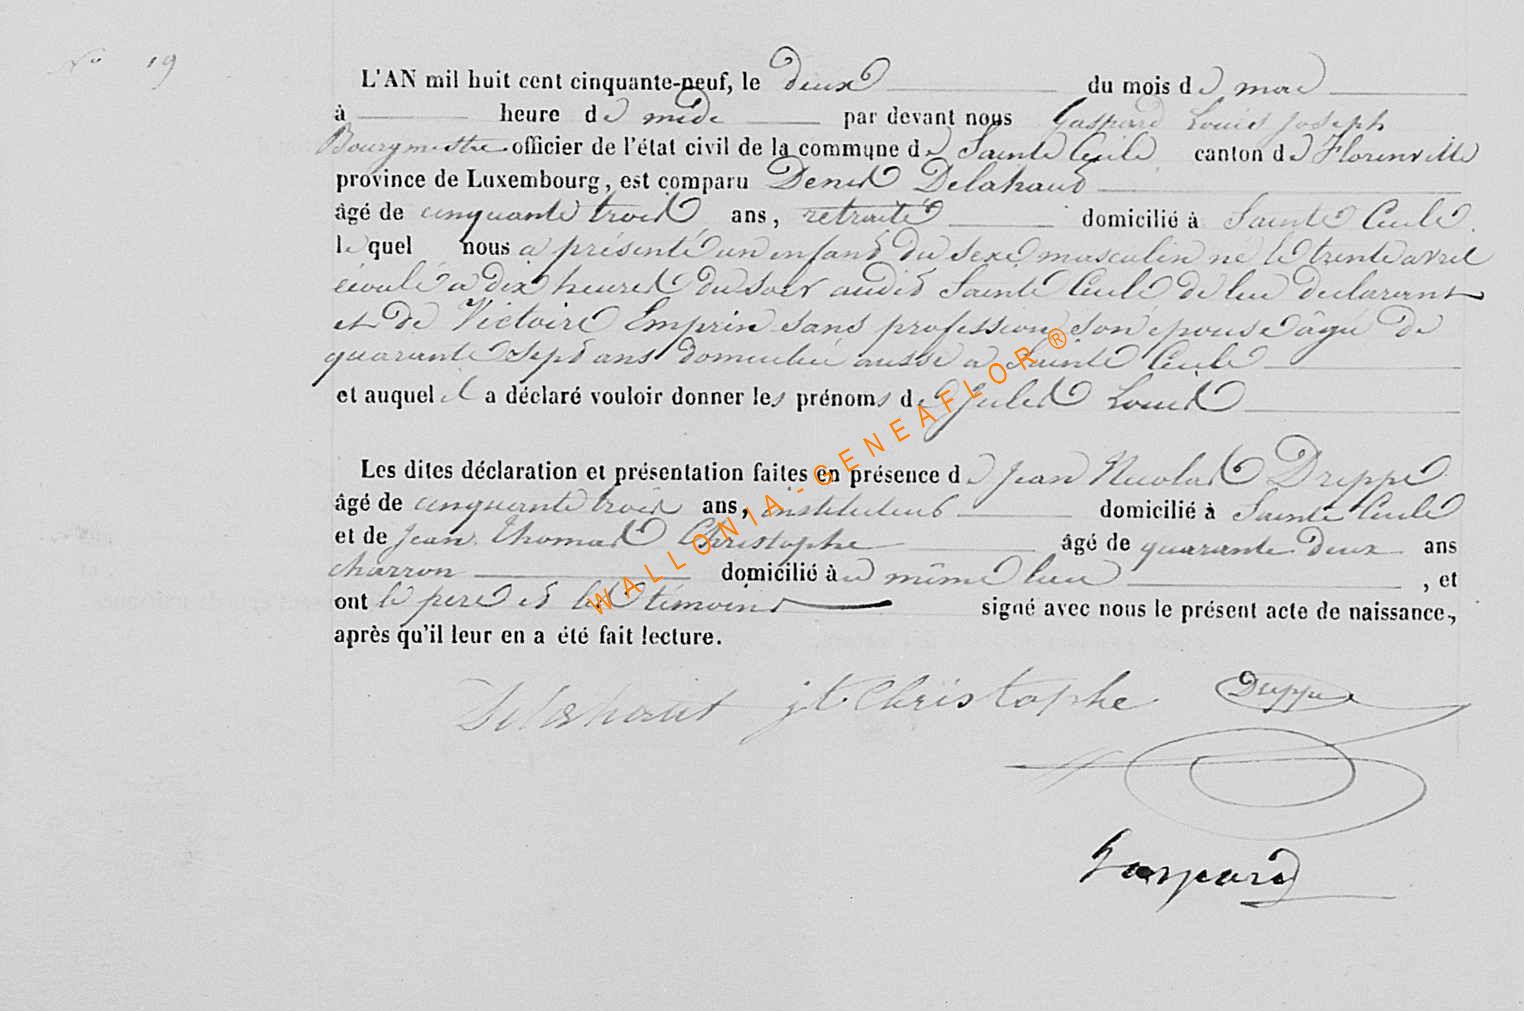 N° 19
L'AN mil huit cent cinquante-neuf, le deux du mois de mai
à heure de midi par devant nous Gaspard Louis Joseph
Bourgmestre officier de l'état civil de la commune de Sainte Cecile canton de Florenville
province de Luxembourg, est comparu Denis Delahaut
âgé de cinquante trois ans, retraité domicilié à Sainte Cecile.
lequel nous a présenté un enfant du sexe masculin né le trente avril
écoulé à dix heures du soir audit Sainte Cecile de lui declarant
et de Victoire Emprin sans profession son épouse âgée de
quarante sept ans domiciliée aussi à Sainte Cecile
et auquel il a déclaré vouloir donner les prénoms de Jules Louis
Les dites déclaration et présentation faites en présence de Jean Nicolas Dreppe
âgé de cinquante trois ans, instituteur domicilié à Sainte Cecile
et de Jean Thomas Christophe âgé de quarante deux ans
charron domicilié à même lieu , et
ont le pere et les témoins signé avec nous le présent acte de naissance,
après qu'il leur en a été fait lecture.
Delahaut jt. Christophe Dreppe
Gaspard
WALLONIA-GENEAFLOR ®